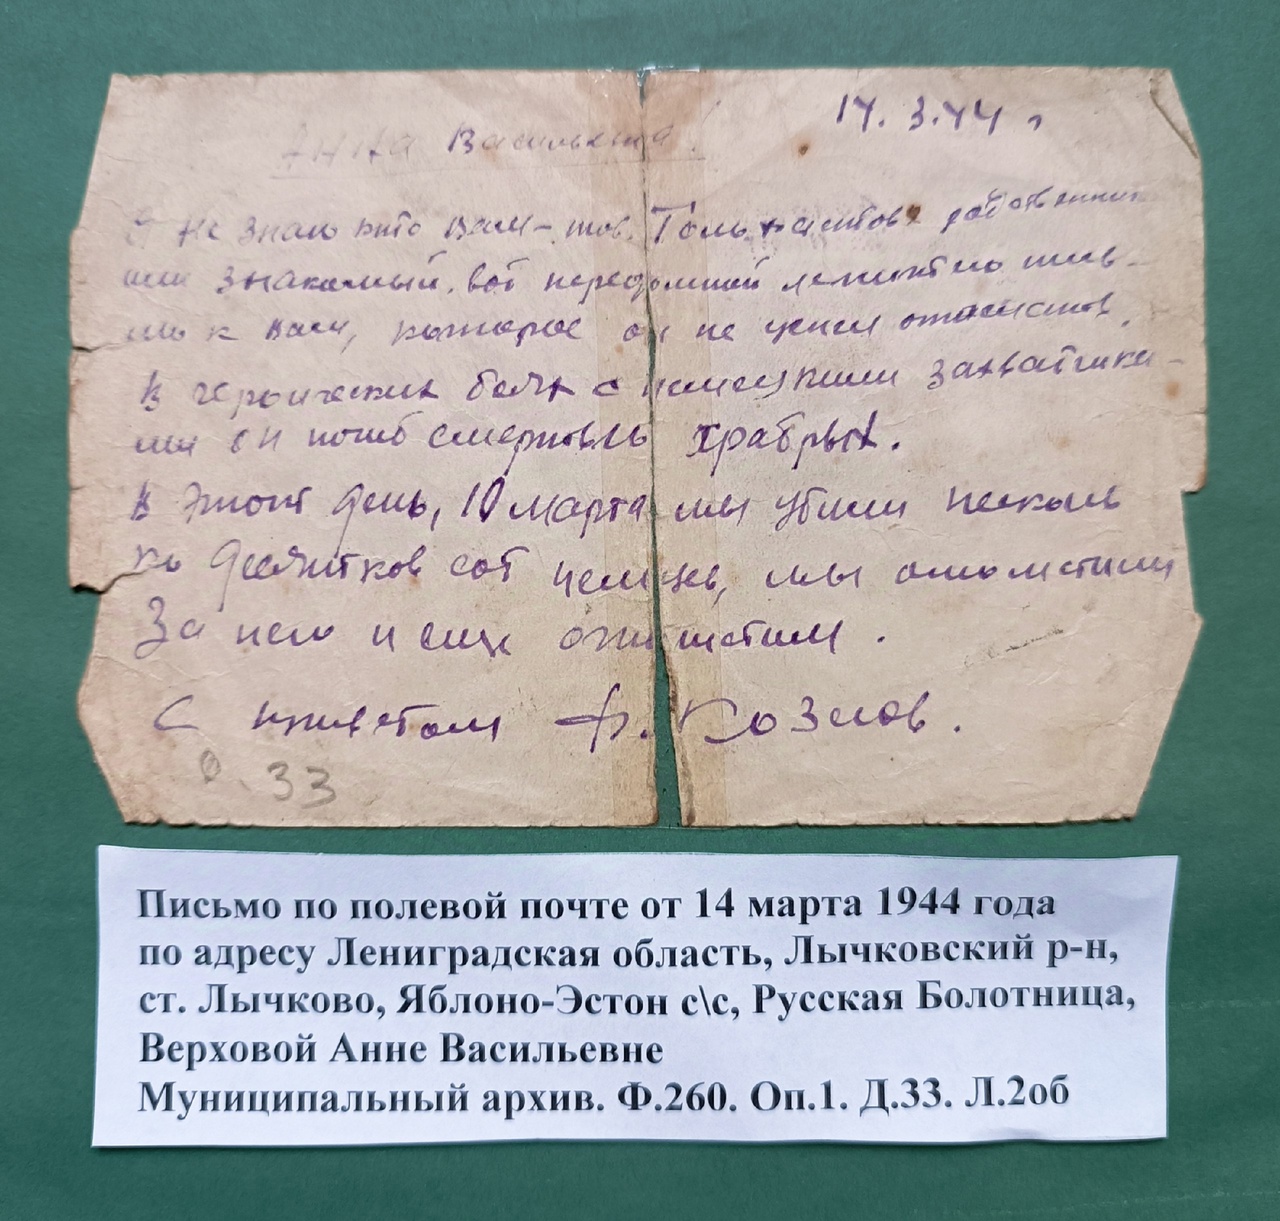 14.3.44 г
Анна Васильевна!
Я не знаю кто Вам – тов. родственник
или знакомый. Вот передо мной лежит письмо
к Вам, которое он не успел отослать.
В героических боях с немецкими захватчика-
ми он погиб смертью храбрых.
В этот день, 10 марта мы убили несколь
ко десятков сот немцев, мы отомстили
За него и еще отомстим.
С приветом Ф. Козлов.
33
Письмо по полевой почте от 14 марта 1944 года
по адресу Лениградская область, Лычковский р-н,
ст. Лычково, Яблоно-Эстон с\с, Русская Болотница,
Верховой Анне Васильевне
Муниципальный архив. Ф.260. Оп.1. Д.33. Л.2об